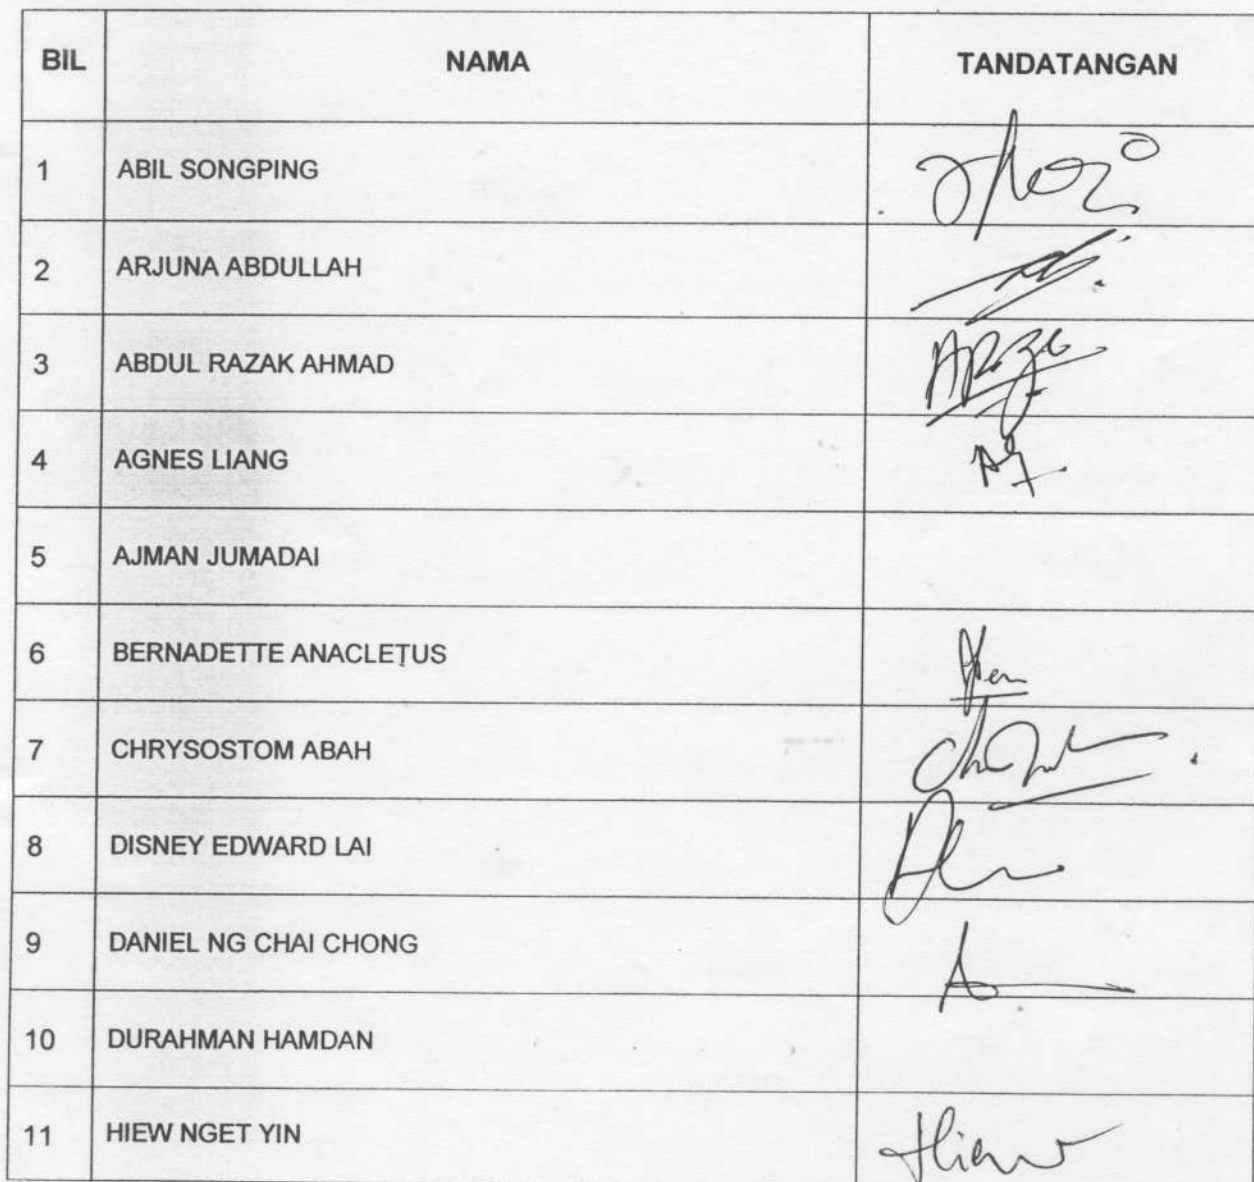 BIL NAMA TANDATANGAN
1 ABIL SONGPING
2 ARJUNA ABDULLAH
3 ABDUL RAZAK AHMAD
4 AGNES LIANG
5 AJMAN JUMADAI
6 BERNADETTE ANACLETUS
7 CHRYSOSTOM ABAH
8 DISNEY EDWARD LAI
9 DANIEL NG CHAI CHONG
10 DURAHMAN HAMDAN
11 HIEW NGET YIN Hiew